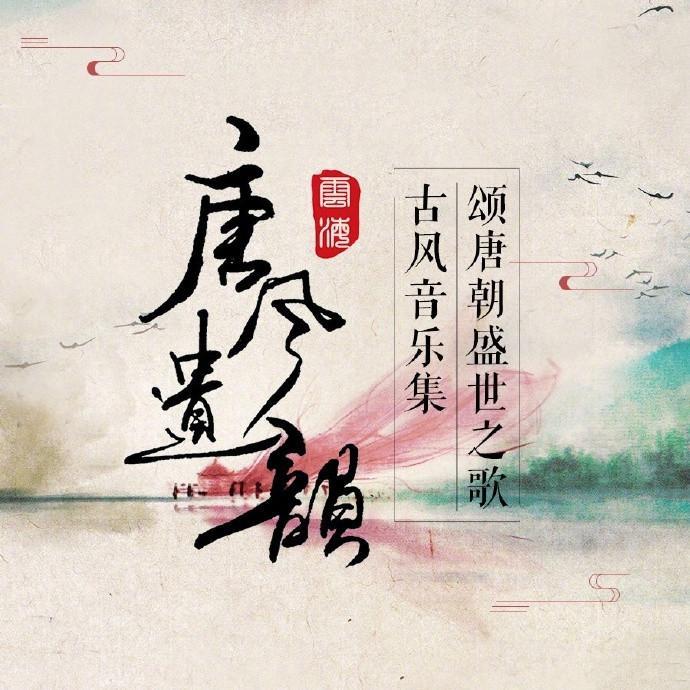 唐风遺韻
雲海
颂唐朝盛世之歌
古风音乐集